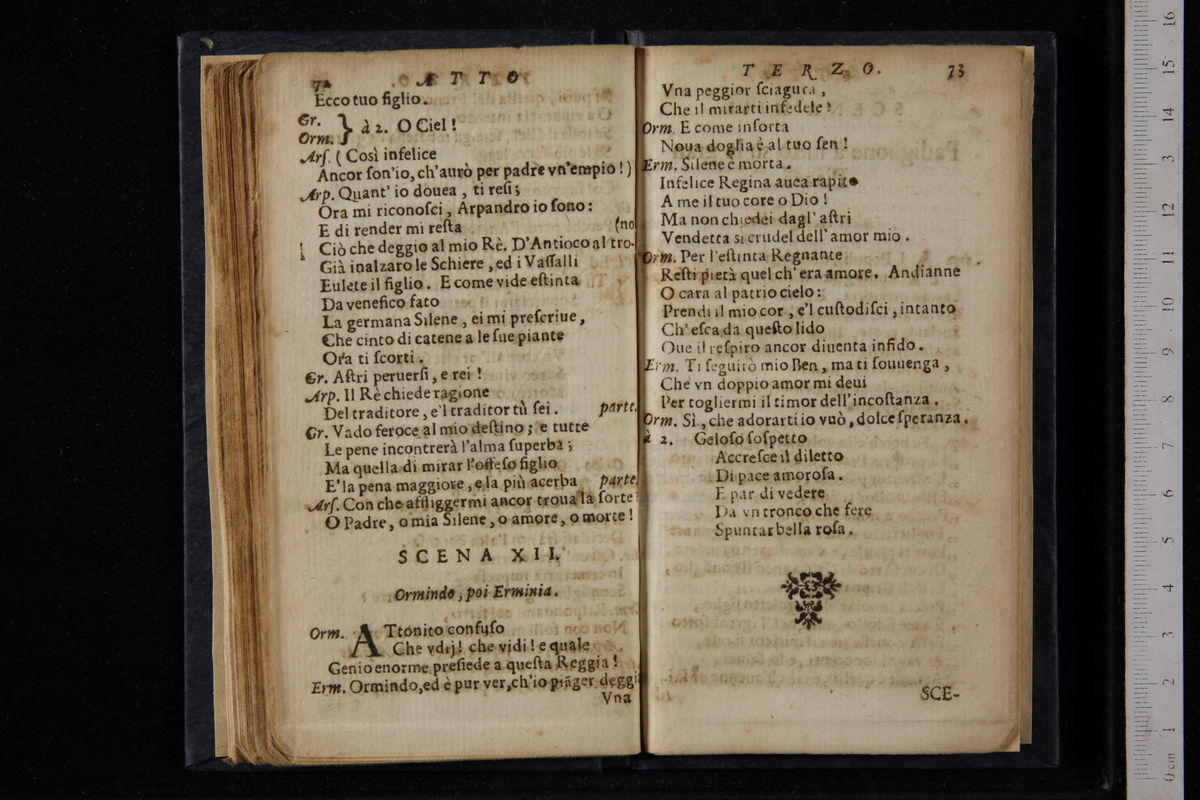 72 ATTO
Ecco tuo figlio.
Gr.
Orm. } à 2. O Ciel!
Arſ. (Così infelice
Ancor ſon'io, ch'aurò per padre vn'empio!)
Arp. Quant' io douea, ti reſi;
Ora mi riconoſci, Arpandro io ſono:
E di render mi reſta (no
Ciò che deggio al mio Rè. D'Antioco al tro-
Già inalzaro le Schiere, ed i Vaſſalli
Eulete il figlio. E come vide eſtinta
Da venefico fato
La germana Silene, ei mi preſcriue,
Che cinto di catene a le ſue piante
Ora ti ſcorti.
Gr. Aſtri peruerſi, e rei!
Arp. Il Rè chiede ragione
Del traditore, e'l traditor tù ſei. parte.
Gr. Vado feroce al mio deſtino; e tutte
Le pene incontrerà l'alma ſuperba;
Ma quella di mirar l'offeſo figlio
E' la pena maggiore, e la più acerba parte.
Arſ. Con che affliggermi ancor troua la ſorte?
O Padre, o mia Silene, o amore, o morte!
SCENA XII.
Ormindo, poi Erminia.
Orm. ATtonito confuſo
Che vdij! che vidi! e quale
Genio enorme preſiede a queſta Reggia!
Erm. Ormindo, ed è pur ver, ch'io piãger deggi
Vna
TERZO. 73
Vna peggior ſciagura,
Che il mirarti infedele?
Orm. E come inſorta
Noua doglia è al tuo ſen!
Erm. Silene è morta.
Infelice Regina auea rapito
A me il tuo core o Dio!
Ma non chiedei dagl' aſtri
Vendetta sì crudel dell' amor mio.
Orm. Per l'eſtinta Regnante
Reſti pietà quel ch' era amore. Andianne
O cara al patrio cielo:
Prendi il mio cor, e'l cuſtodiſci, intanto
Ch' eſca da queſto lido
Oue il reſpiro ancor diuenta infido.
Erm. Ti ſeguirò mio Ben, ma ti ſouuenga,
Che vn doppio amor mi deui
Per togliermi il timor dell'incoſtanza.
Orm. Sì, che adorarti io vuò, dolce ſperanza.
à 2. Geloſo ſoſpetto
Accreſce il diletto
Di pace amoroſa.
E par di vedere
Da vn tronco che fere
Spuntar bella roſa.
SCE-
0 cm 1 2 3 4 5 6 7 8 9 10 11 12 13 14 15 16